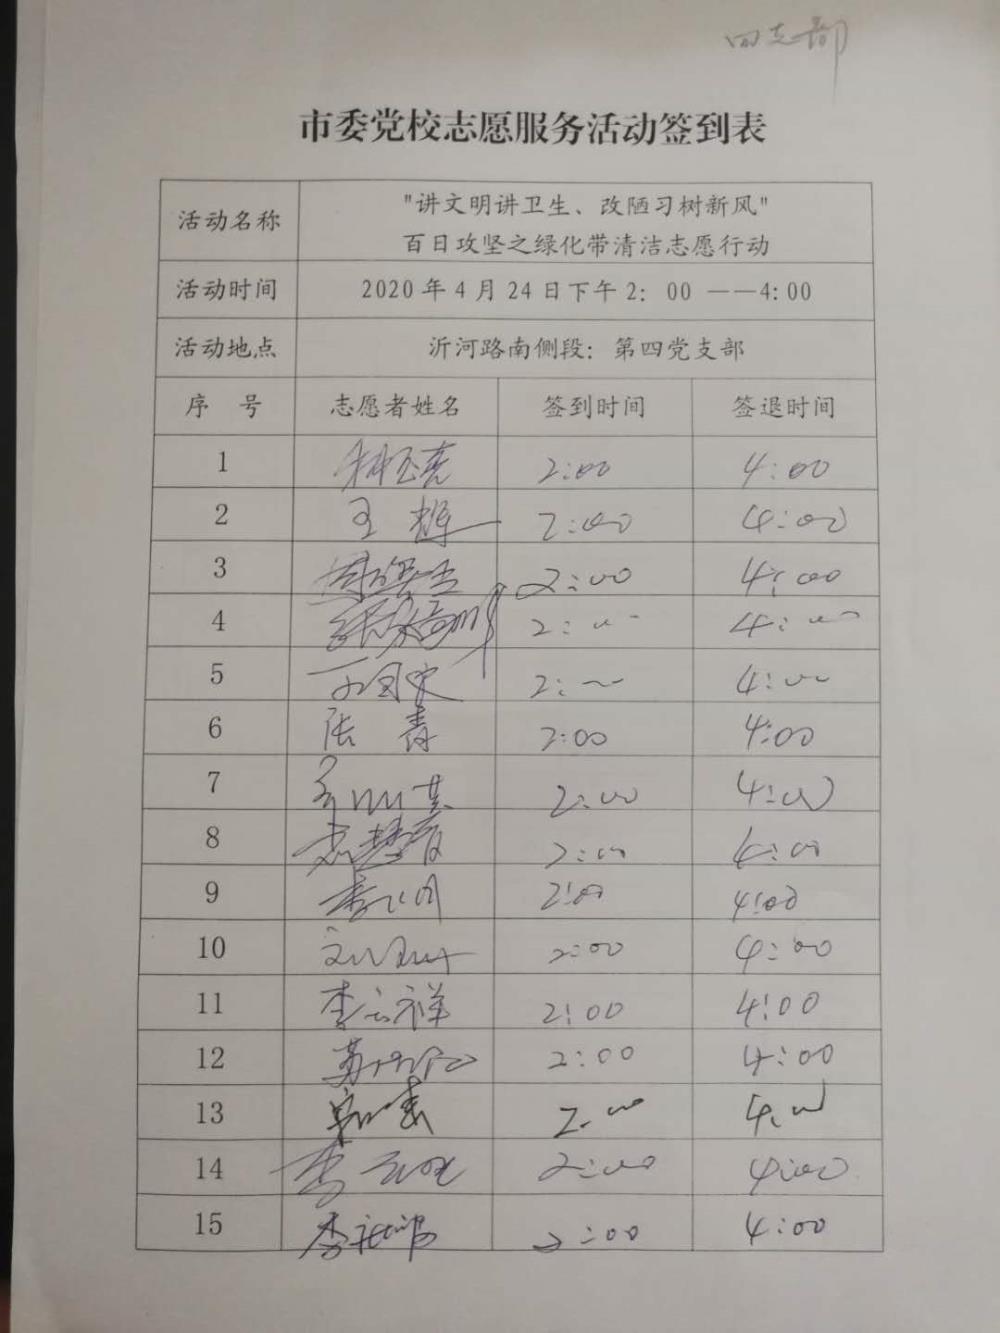 四支部
市委党校志愿服务活动签到表
活动名称
"讲文明讲卫生、改陋习树新风"
百日攻坚之绿化带清洁志愿行动
活动时间 2020年4月24日下午2：00 ——4:00
活动地点 沂河路南侧段：第四党支部
序 号 志愿者姓名 签到时间 签退时间
1 2:00 4:00
2 王 辉 2:00 4:00
3 2:00 4:00
4 2:00 4:00
5 2:00 4:00
6 张 青 2:00 4:00
7 2:00 4:00
8 2:00 4:00
9 2:00 4:00
10 2:00 4:00
11 李云祥 2:00 4:00
12 2:00 4:00
13 2:00 4:00
14 2:00 4:00
15 2:00 4:00